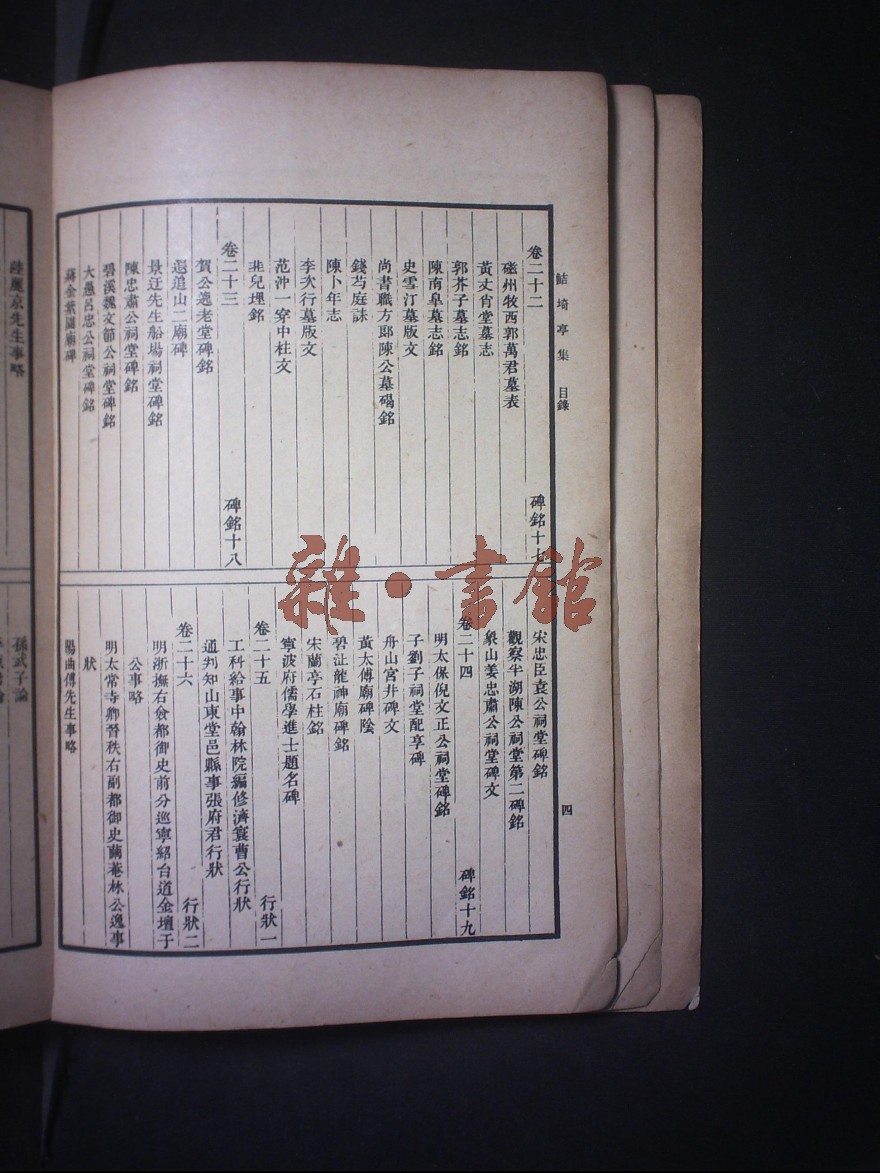 鮚埼亭集 目錄
四
卷二十二 碑銘十七
磁州牧西郭萬君墓表
黃丈肖堂墓志
郭芥子墓志銘
陳南臯墓志銘
史雪汀墓版文
尚書職方郎陳公墓碣銘
錢芍庭誄
陳卜年志
李次行墓版文
范沖一穿中柱文
韭兒埋銘
卷二十三 碑銘十八
賀公逸老堂碑銘
遐追山二廟碑
景迂先生船場祠堂碑銘
陳忠肅公祠堂碑銘
碧溪魏文節公祠堂碑銘
大愚呂忠公祠堂碑銘
宋忠臣袁公祠堂碑銘
觀察半湖陳公祠堂第二碑銘
象山姜忠肅公祠堂碑文
卷二十四 碑銘十九
明太保倪文正公祠堂碑銘
子劉子祠堂配享碑
舟山宮井碑文
黃太傅廟碑陰
碧沚龍神廟碑銘
宋蘭亭石柱銘
寧波府儒學進士題名碑
卷二十五 行狀一
工科給事中翰林院編修濟寰曹公行狀
通判知山東堂邑縣事張府君行狀
卷二十六 行狀二
明浙撫右僉都御史前分巡寧紹台道金壇于
公事略
明太常寺卿晉秩右副都御史繭菴林公逸事
狀
陽曲傅先生事略
陸麗京先生事略
孫武子論
雜·書館